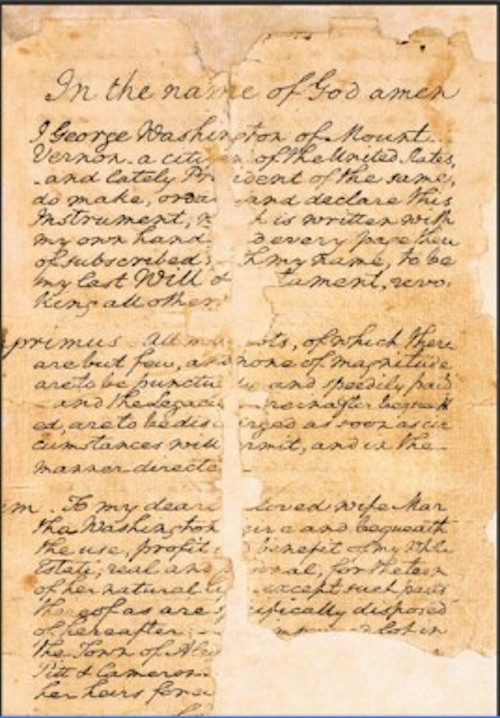 In the name of God amen
I George Washington of Mount
Vernon a citizen of the United States,
and lately Pr ident of the same,
do make, orda and declare this
Instrument, w h is written with
my own hand d every page there
of subscribed h my name, to be
my last Will & tament, revo
king all others
primus all my bts, of which there
are but few, and none of magnitude
are to be punctu ly and speedily paid
and the Legacies reinafter bequeath
ed, are to be dis arged as soon as cir
cumstances will rmit, and in the
manner directe
em. To my dear loved wife Mar
tha Washington give and bequeath
the use, profit benefit of my whole
Estate, real and nal, for the term
of her natural li except such parts
thereof as are s cifically disposed
of hereafter: lot in
the Town of Alex
Pitt & Cameron
her heirs forev